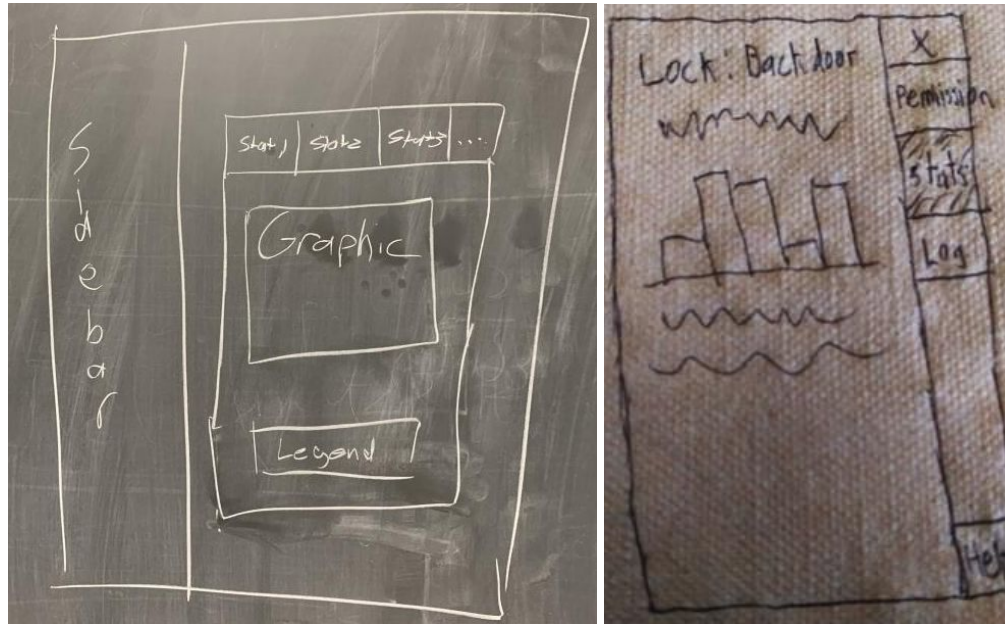 Sidebar
Stat1 Stat2 Stat3 ...
Graphic
Legend
Lock: Backdoor
X
Permission
Stats
Log
Help